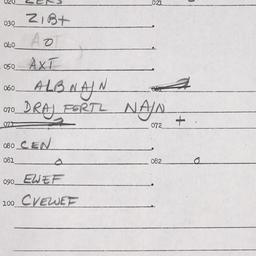 020 ZERS 021
030 ZIBT
040 O
050 AXT
060 ALBNAJN
070 DRAJ FERTL NAJN
071 072 +
080 CEN
081 0 082 0
090 EWEF
100 CVEWEF